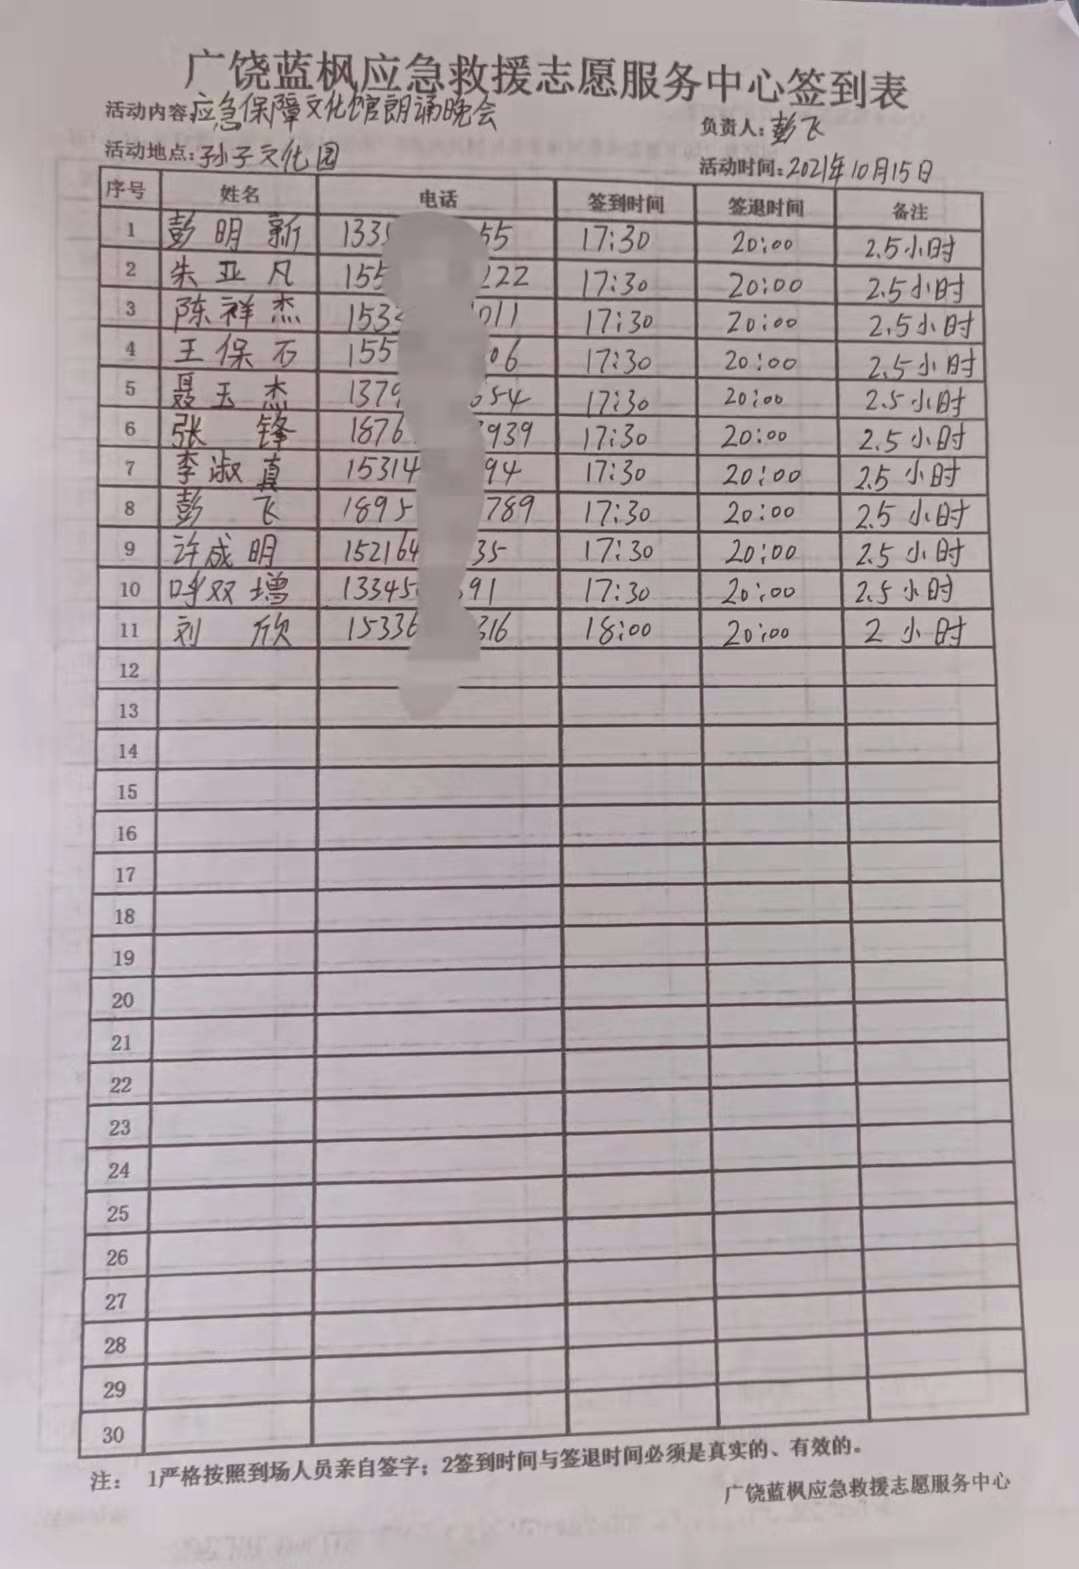 广饶蓝枫应急救援志愿服务中心签到表
活动内容:应急保障文化馆朗诵晚会
负责人:彭飞
活动地点:孙子文化园
活动时间:2021年10月15日
序号 姓名 电话 签到时间 签退时间 备注
1 彭明新 133 55 17:30 20:00 2.5小时
2 朱亚凡 155 222 17:30 20:00 2.5小时
3 陈祥杰 153 011 17:30 20:00 2.5小时
4 王保石 155 06 17:30 20:00 2.5小时
5 聂玉杰 1379 654 17:30 20:00 2.5小时
6 张锋 1876 3939 17:30 20:00 2.5小时
7 李淑真 15314 94 17:30 20:00 2.5小时
8 彭飞 1895 789 17:30 20:00 2.5小时
9 许成明 152164 35 17:30 20:00 2.5小时
10 呼双增 13345 91 17:30 20:00 2.5小时
11 刘欣 15336 316 18:00 20:00 2小时
12
13
14
15
16
17
18
19
20
21
22
23
24
25
26
27
28
29
30
注: 1严格按照到场人员亲自签字;2签到时间与签退时间必须是真实的、有效的。
广饶蓝枫应急救援志愿服务中心